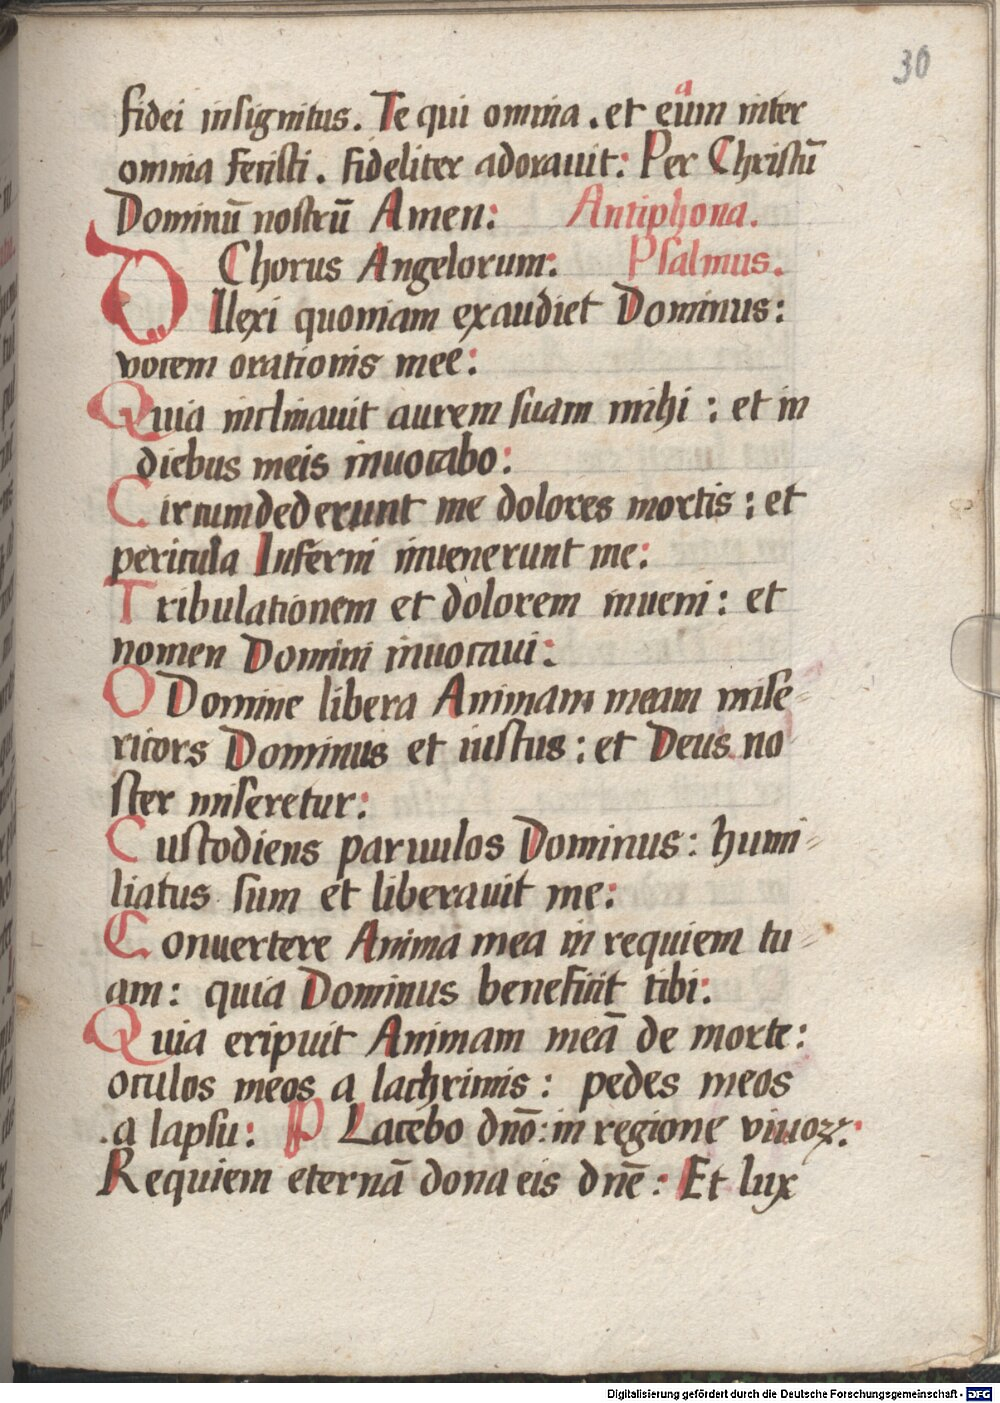 30
fidei insignitus. Te qui omnia . et eūm inter
omnia fecisti . fideliter adorauit: Per Christū
Dominū nostrū Amen: Antiphona.
Chorus Angelorum: Psalmus.
DIlexi quoniam exaudiet Dominus:
vocem orationis mee:
Quia inclinauit aurem suam mihi : et in
diebus meis inuocabo:
Circumdederunt me dolores mortis : et
pericula Inferni inuenerunt me:
Tribulationem et dolorem inueni : et
nomen Domini inuocaui:
O Domine libera Animam meam mise-
ricors Dominus et iustus : et Deus no
ster miseretur:
Custodiens paruulos Dominus: humi-
liatus sum et liberauit me:
Conuertere Anima mea in requiem tu-
am: quia Dominus benefecit tibi:
Quia eripuit Animam meā de morte:
oculos meos a lachrimis : pedes meos
.a lapsu: PLacebo dn̄o: in regione viuoꝝ:
Requiem eternā dona eis dn̄e : Et lux
Digitalisierung gefördert durch die Deutsche Forschungsgemeinschaft - DFG